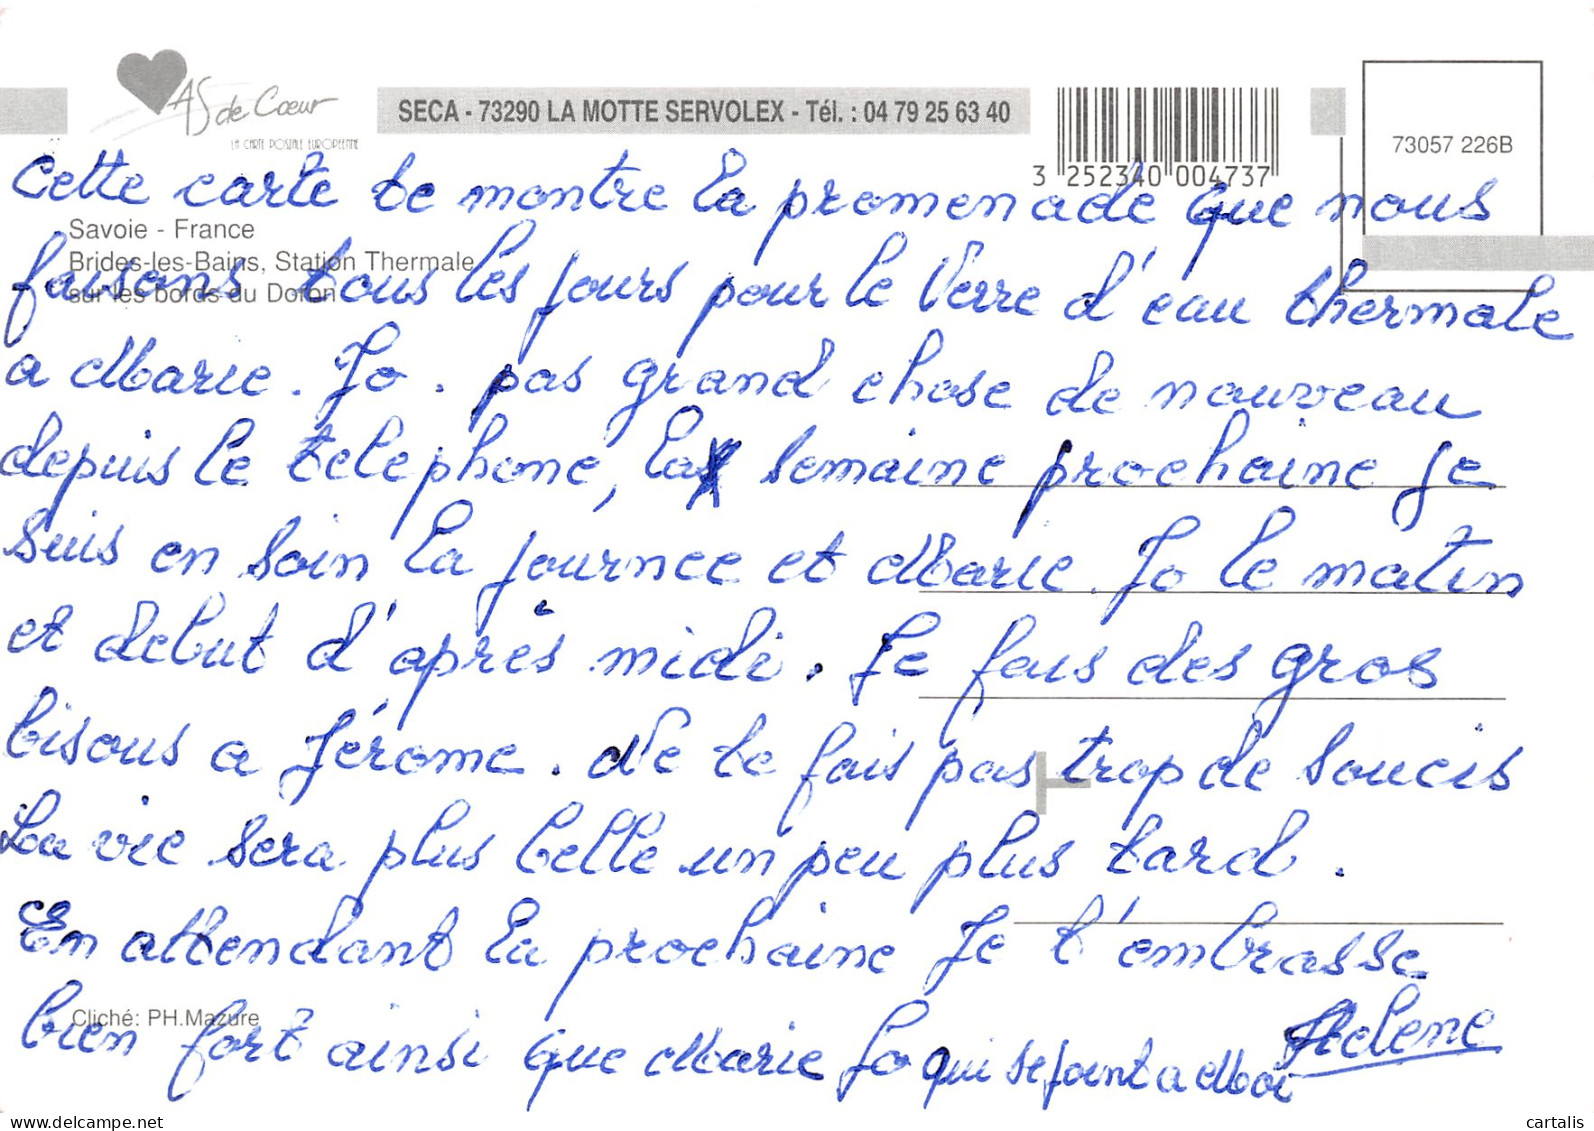 AS de Cœur
LA CARTE POSTALE EUROPEENNE
SECA - 73290 LA MOTTE SERVOLEX - Tél. : 04 79 25 63 40
3 252340 004737
73057 226B
Savoie - France
Brides-les-Bains, Station Thermale
sur les bords du Doron
Cette carte te montre la promenade que nous
faisons tous les jours pour le verre d'eau thermale
a Marie. Jo. pas grand chose de nouveau
depuis le telephone, la semaine prochaine je
suis en soin la journee et Marie. Jo le matin
et debut d'après midi. Je fais des gros
bisous a Jérome. Ne te fais pas trop de soucis
La vie sera plus belle un peu plus tard.
En attendant la prochaine Je t'embrasse
bien fort ainsi que Marie Jo qui se joint a Moi
Helene
Cliché: PH.Mazure
delcampe.net
cartalis